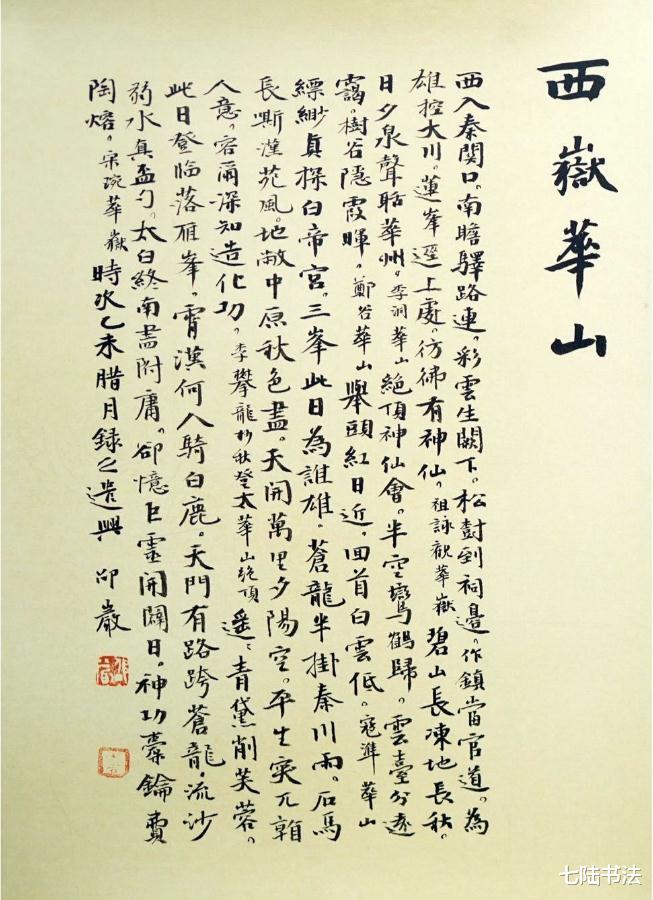 西嶽華山
西入秦關口。南瞻驛路連。彩雲生闕下。松樹到祠邊。作鎮當官道。為
雄控大川。蓮峯逕上處。彷彿有神仙。祖詠觀華嶽 碧山長凍地長秋。
日夕泉聲聒華州。李洞華山 絕頂神仙會。半空鸞鶴歸。雲臺分遠
靄。樹谷隱霞暉。鄭谷華山 舉頭紅日近。回首白雲低。寇準華山
縹緲真探白帝宮。三峯此日為誰雄。蒼龍半掛秦川雨。石馬
長嘶漢苑風。地敞中原秋色盡。天開萬里夕陽空。平生突兀看
人意。容爾深知造化功。李攀龍杪秋登太華山絕頂 遙遙青黛削芙蓉。
此日登臨落雁峯。霄漢何人騎白鹿。天門有路跨蒼龍。流沙
弱水真盃勺。太白終南盡附庸。卻憶巨靈開闢日。神功橐鑰費
陶熔。宋琬華嶽 時次乙未腊月錄之遣興 邵巖
七陆书法